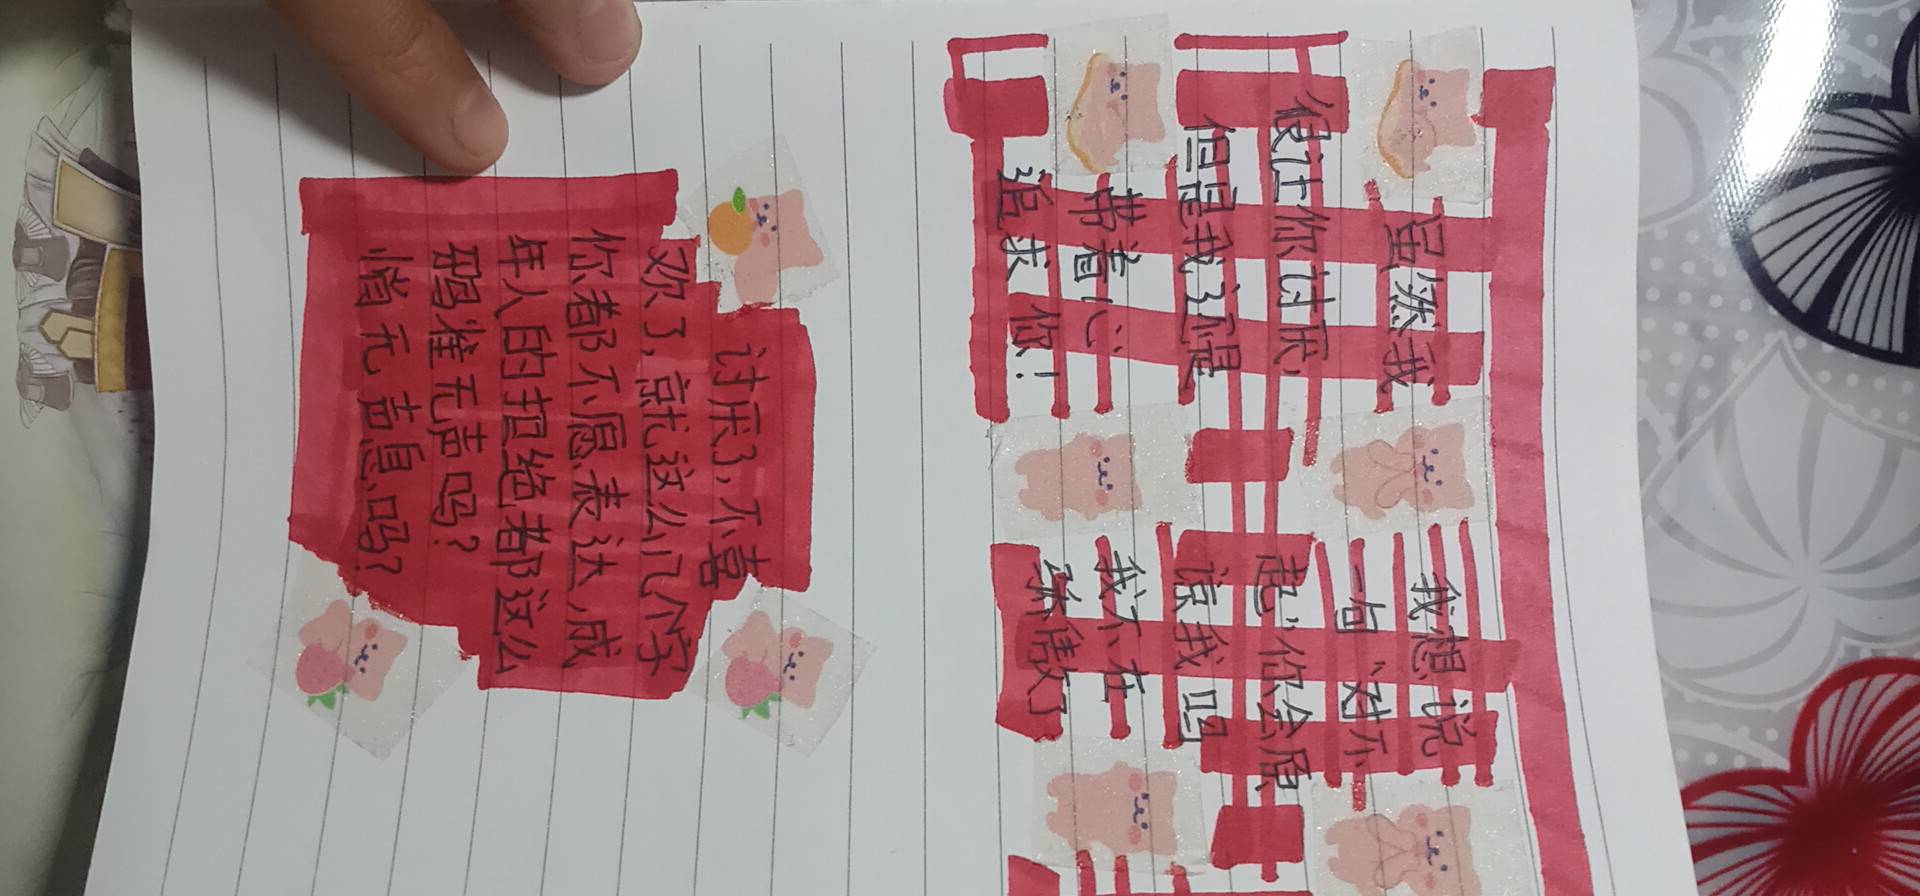 虽然我
很让你讨厌,
但是我还是
带着心
追求你!
我想说
一句“对不
起”你会原
谅我吗
我不在
骄傲了
讨厌了,不喜
欢了,就这么几个字
你都不愿表达,成
年人的拒绝都这么
鸦准无声吗?
悄无声息吗?